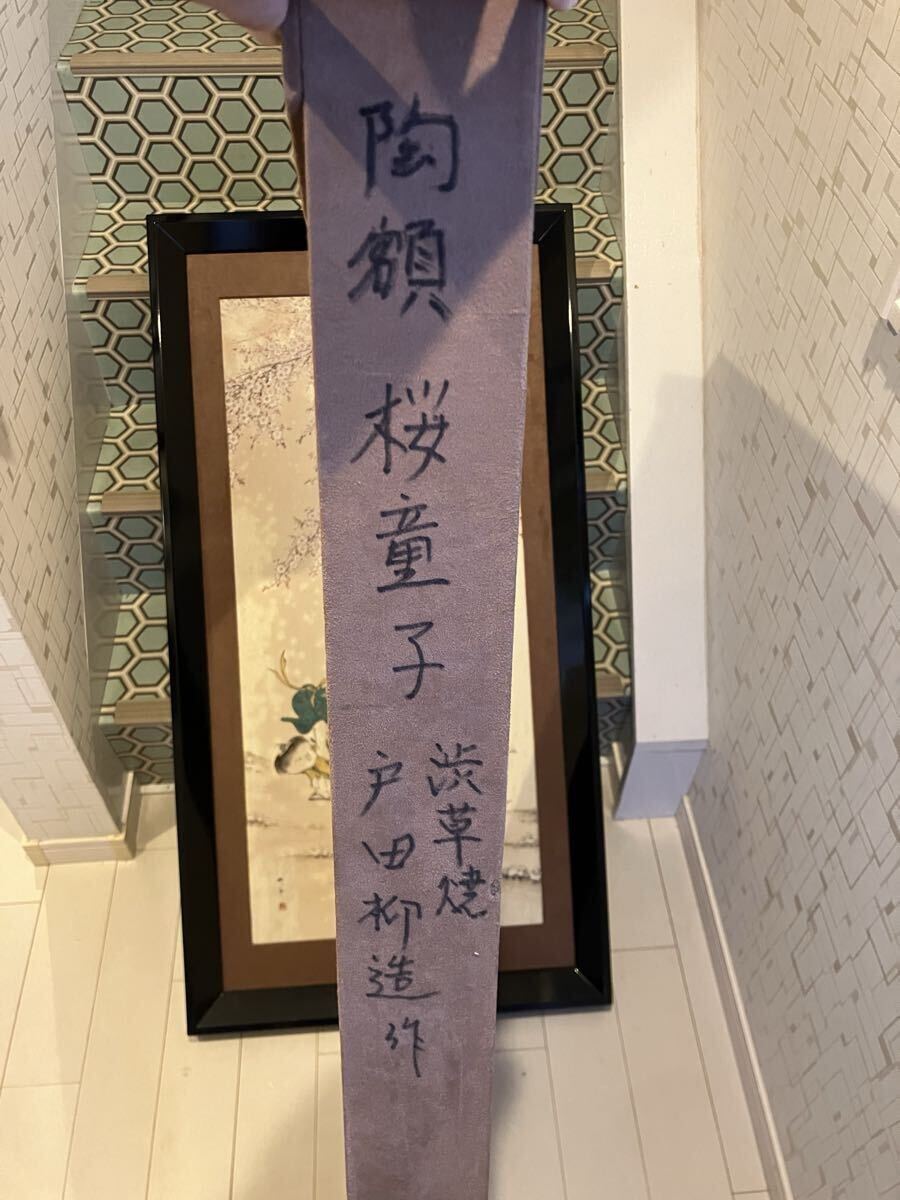 陶額 桜童子
渋草焼
戸田柳造作